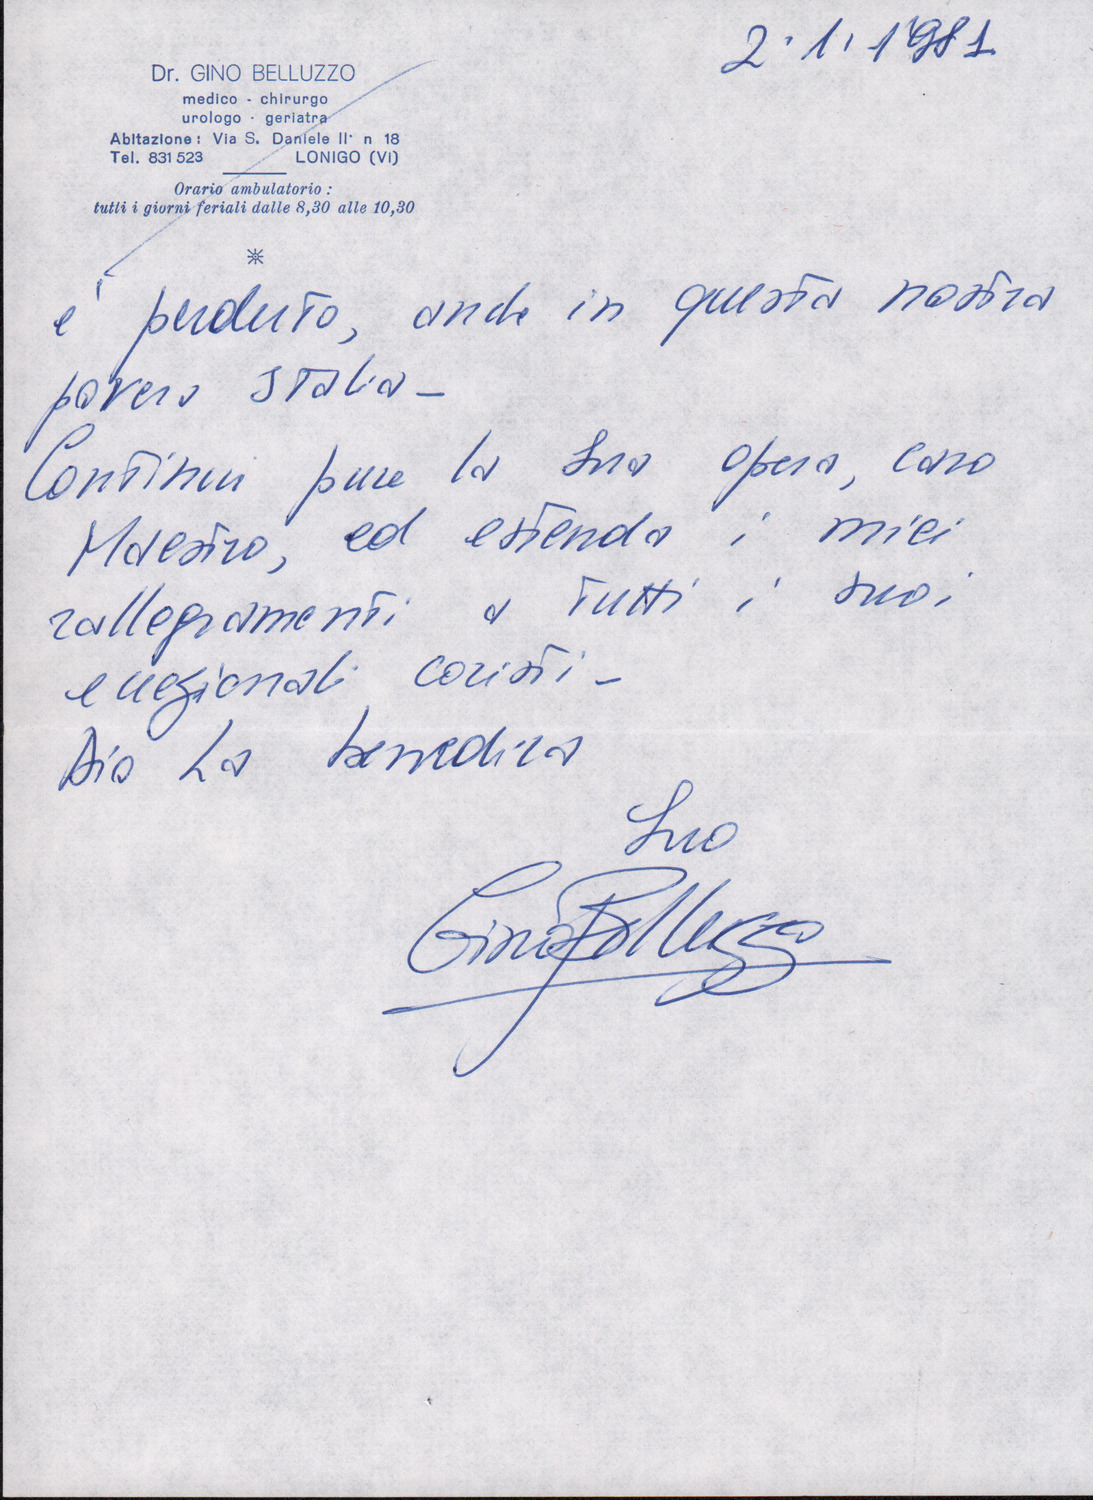 2.1.1981
Dr. GINO BELLUZZO
medico - chirurgo
urologo - geriatra
Abitazione: Via S. Daniele II° n 18
Tel. 831523 LONIGO (Vi)
Orario ambulatorio:
tutti i giorni feriali dalle 8,30 alle 10,30
è perduto, anche in questa nostra
povera Italia -
Continui pure la Sua opera, caro
Maestro, ed estenda i miei
rallegramenti a tutti i suoi
eccezionali coristi -
Dio La benedica
Suo
Gino Belluzzo